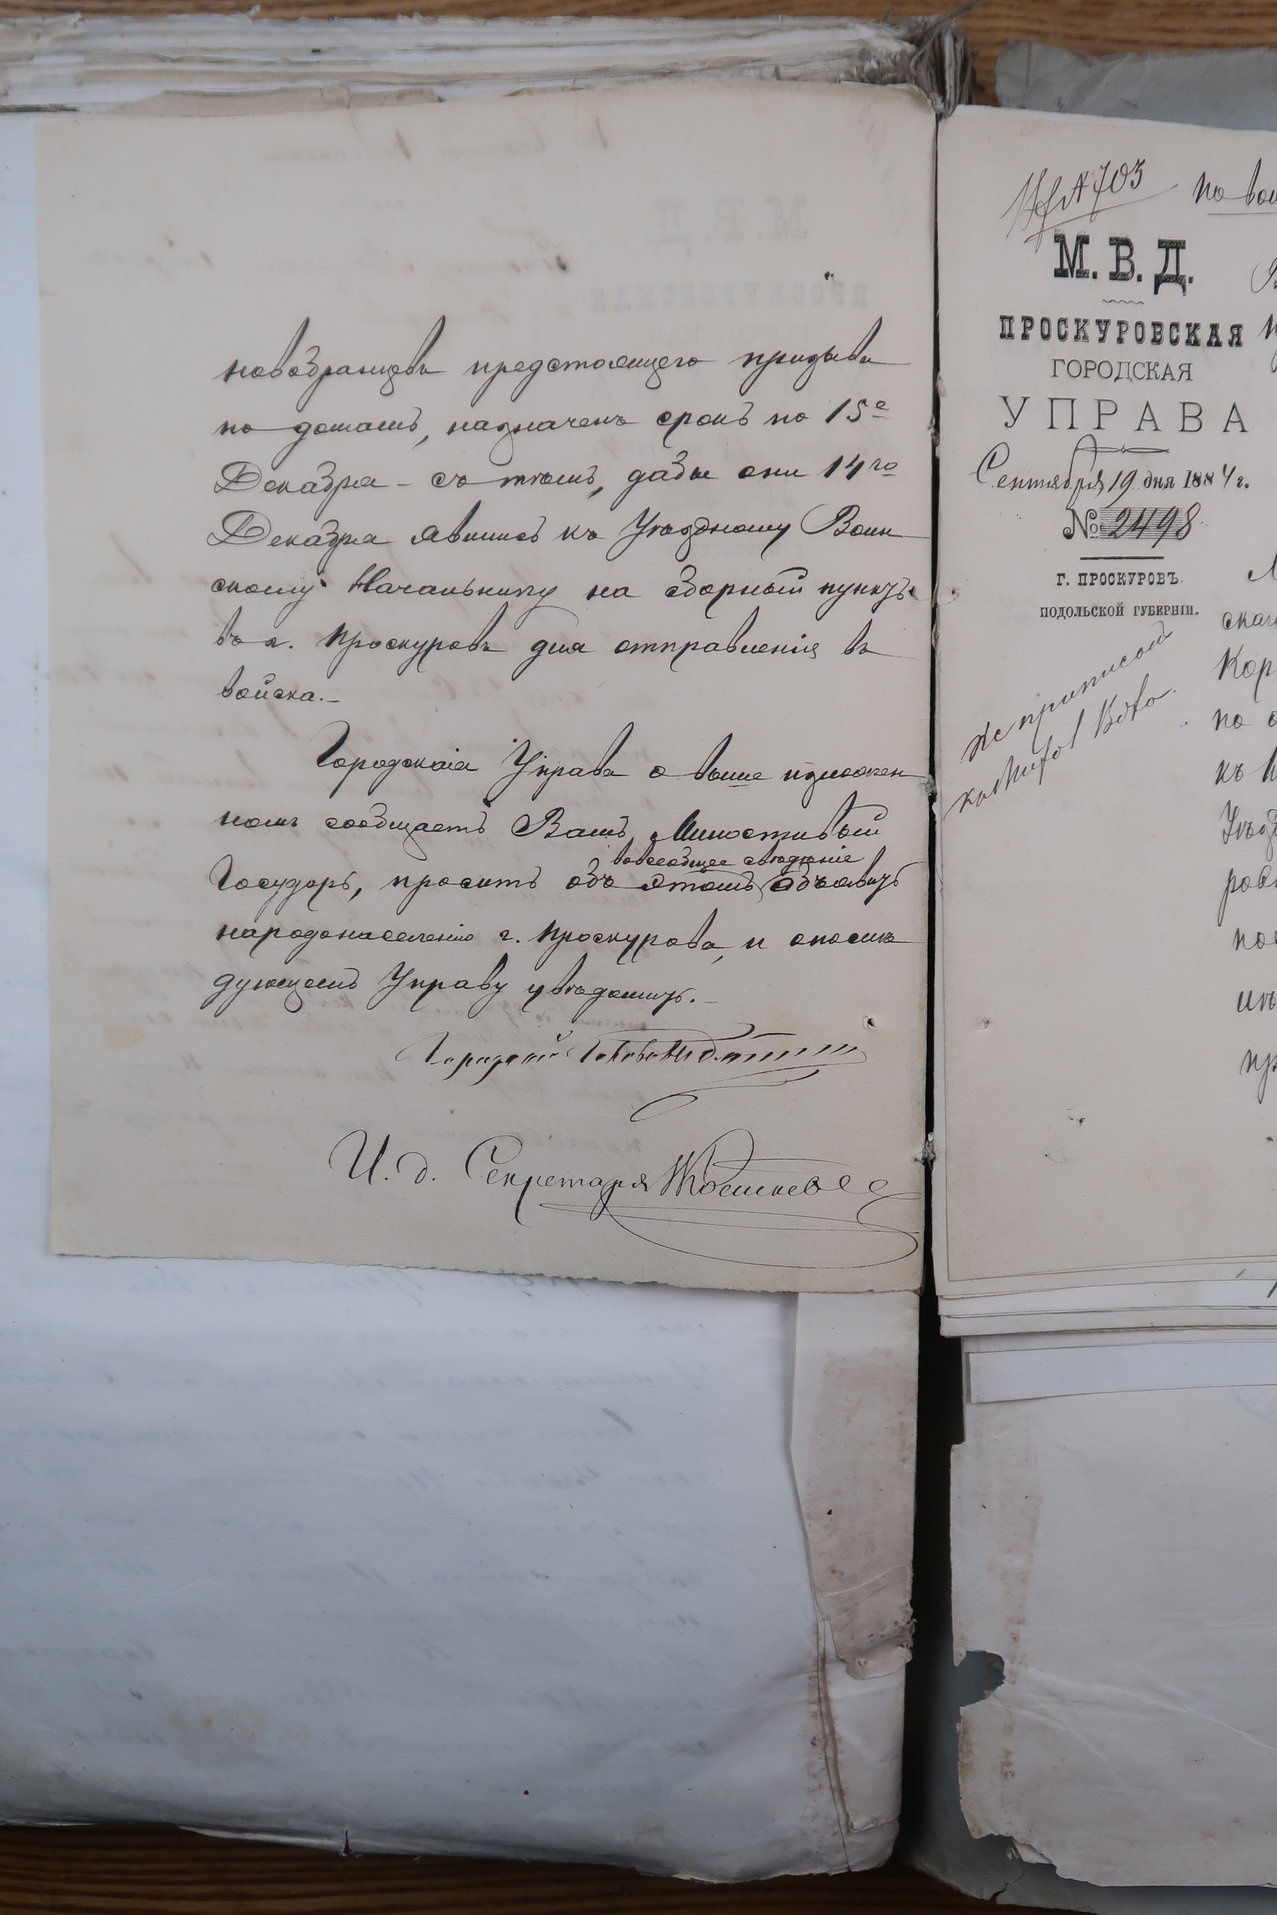 новобранцевъ предстоящего призыва
по домамъ, назначенъ срокъ по 15е
Декабря - съ тѣмъ, дабы они 14го
Декабря явились къ Уѣздному Воин
скому Начальнику на сборный пунктъ
въ г. Проскуровъ для отправленія въ
войска.-
Городская Управа о выше изложен
номъ сообщаетъ Вамъ, Милостивый
во всеобщее свѣдѣніе
Государь, проситъ объ этомъ объявить
народонаселенію г. Проскурова, и о послѣ
дующемъ Управу увѣдомить.-
Городской Голова
И. д. Секретаря
703
По вои
М. В. Д.
ПРОСКУРОВСКАЯ
ГОРОДСКАЯ
УПРАВА
Сентября 19 дня 1884 г.
№ 2498
Г. ПРОСКУРОВЪ.
ПОДОЛЬСКОЙ ГУБЕРНІИ.
скаг
Кор
по о
къ
Уѣзд
ров
пос